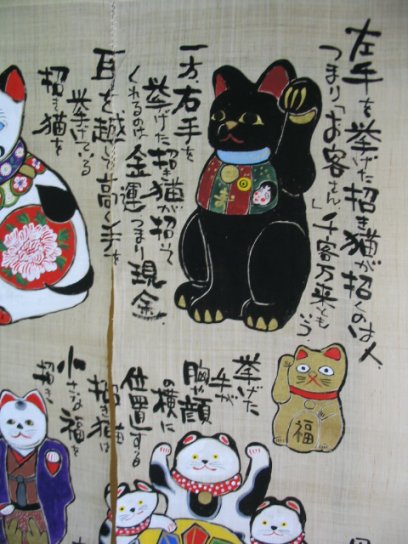 左手を挙げた招き猫が招くのは人、
つまり「お客さん」千客万来とも
いう
一方、右手を
挙げた招き猫が招いて
くれるのは金運つまり現金
耳を越して高く手を
挙げている
招き猫を
挙げた
手が
胸や顔
の横に
位置する
招き猫は
小さな福を
招き
福